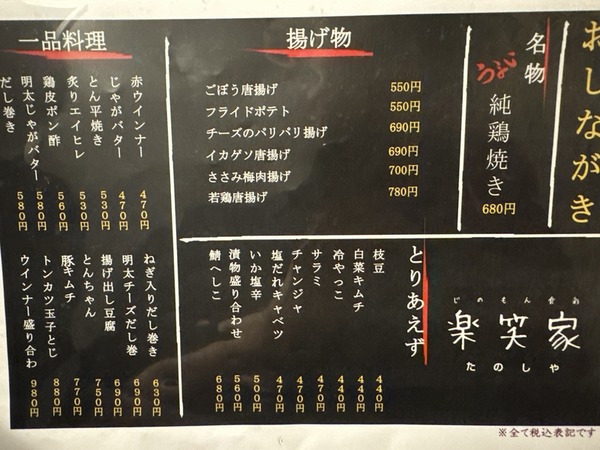 おしながき
名物
純鶏焼き
680円
揚げ物
ごぼう唐揚げ 550円
フライドポテト 550円
チーズのパリパリ揚げ 690円
イカゲソ唐揚げ 690円
ささみ梅肉揚げ 700円
若鶏唐揚げ 780円
一品料理
赤ウインナー 470円
じゃがバター 470円
とん平焼き 530円
炙りエイヒレ 530円
鶏皮ポン酢 560円
明太じゃがバター 580円
だし巻き 580円
ねぎ入りだし巻き 630円
明太チーズだし巻 690円
揚げ出し豆腐 690円
とんちゃん 750円
豚キムチ 770円
トンカツ玉子とじ 880円
ウインナー盛り合わ 980円
とりあえず
枝豆 440円
白菜キムチ 440円
冷やっこ 440円
サラミ 470円
チャンジャ 470円
塩だれキャベツ 470円
いか塩辛 500円
漬物盛り合わせ 580円
鯖へしこ 680円
楽笑家
たのしや
※全て税込表記です